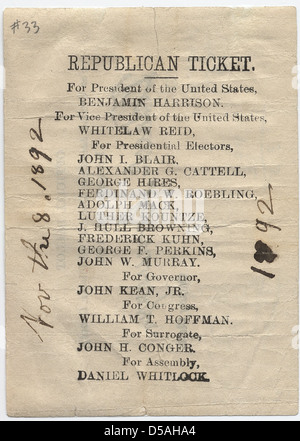 #33
REPUBLICAN TICKET.
For President of the United States,
BENJAMIN HARRISON.
For Vice President of the United States,
WHITELAW REID,
For Presidential Electors,
JOHN I. BLAIR,
ALEXANDER G. CATTELL,
GEORGE HIRES,
FERDINAND W. ROEBLING,
ADOLPH MACK,
LUTHER KOUNTZE,
J. HULL BROWNING,
FREDERICK KUHN,
GEORGE F. PERKINS,
JOHN W. MURRAY.
For Governor,
JOHN KEAN, JR.
For Congress,
WILLIAM T. HOFFMAN.
For Surrogate,
JOHN H. CONGER.
For Assembly,
DANIEL WHITLOCK.
Nov the 8. 1892
1892
alamy
Image ID: D5AHA4
www.alamy.com